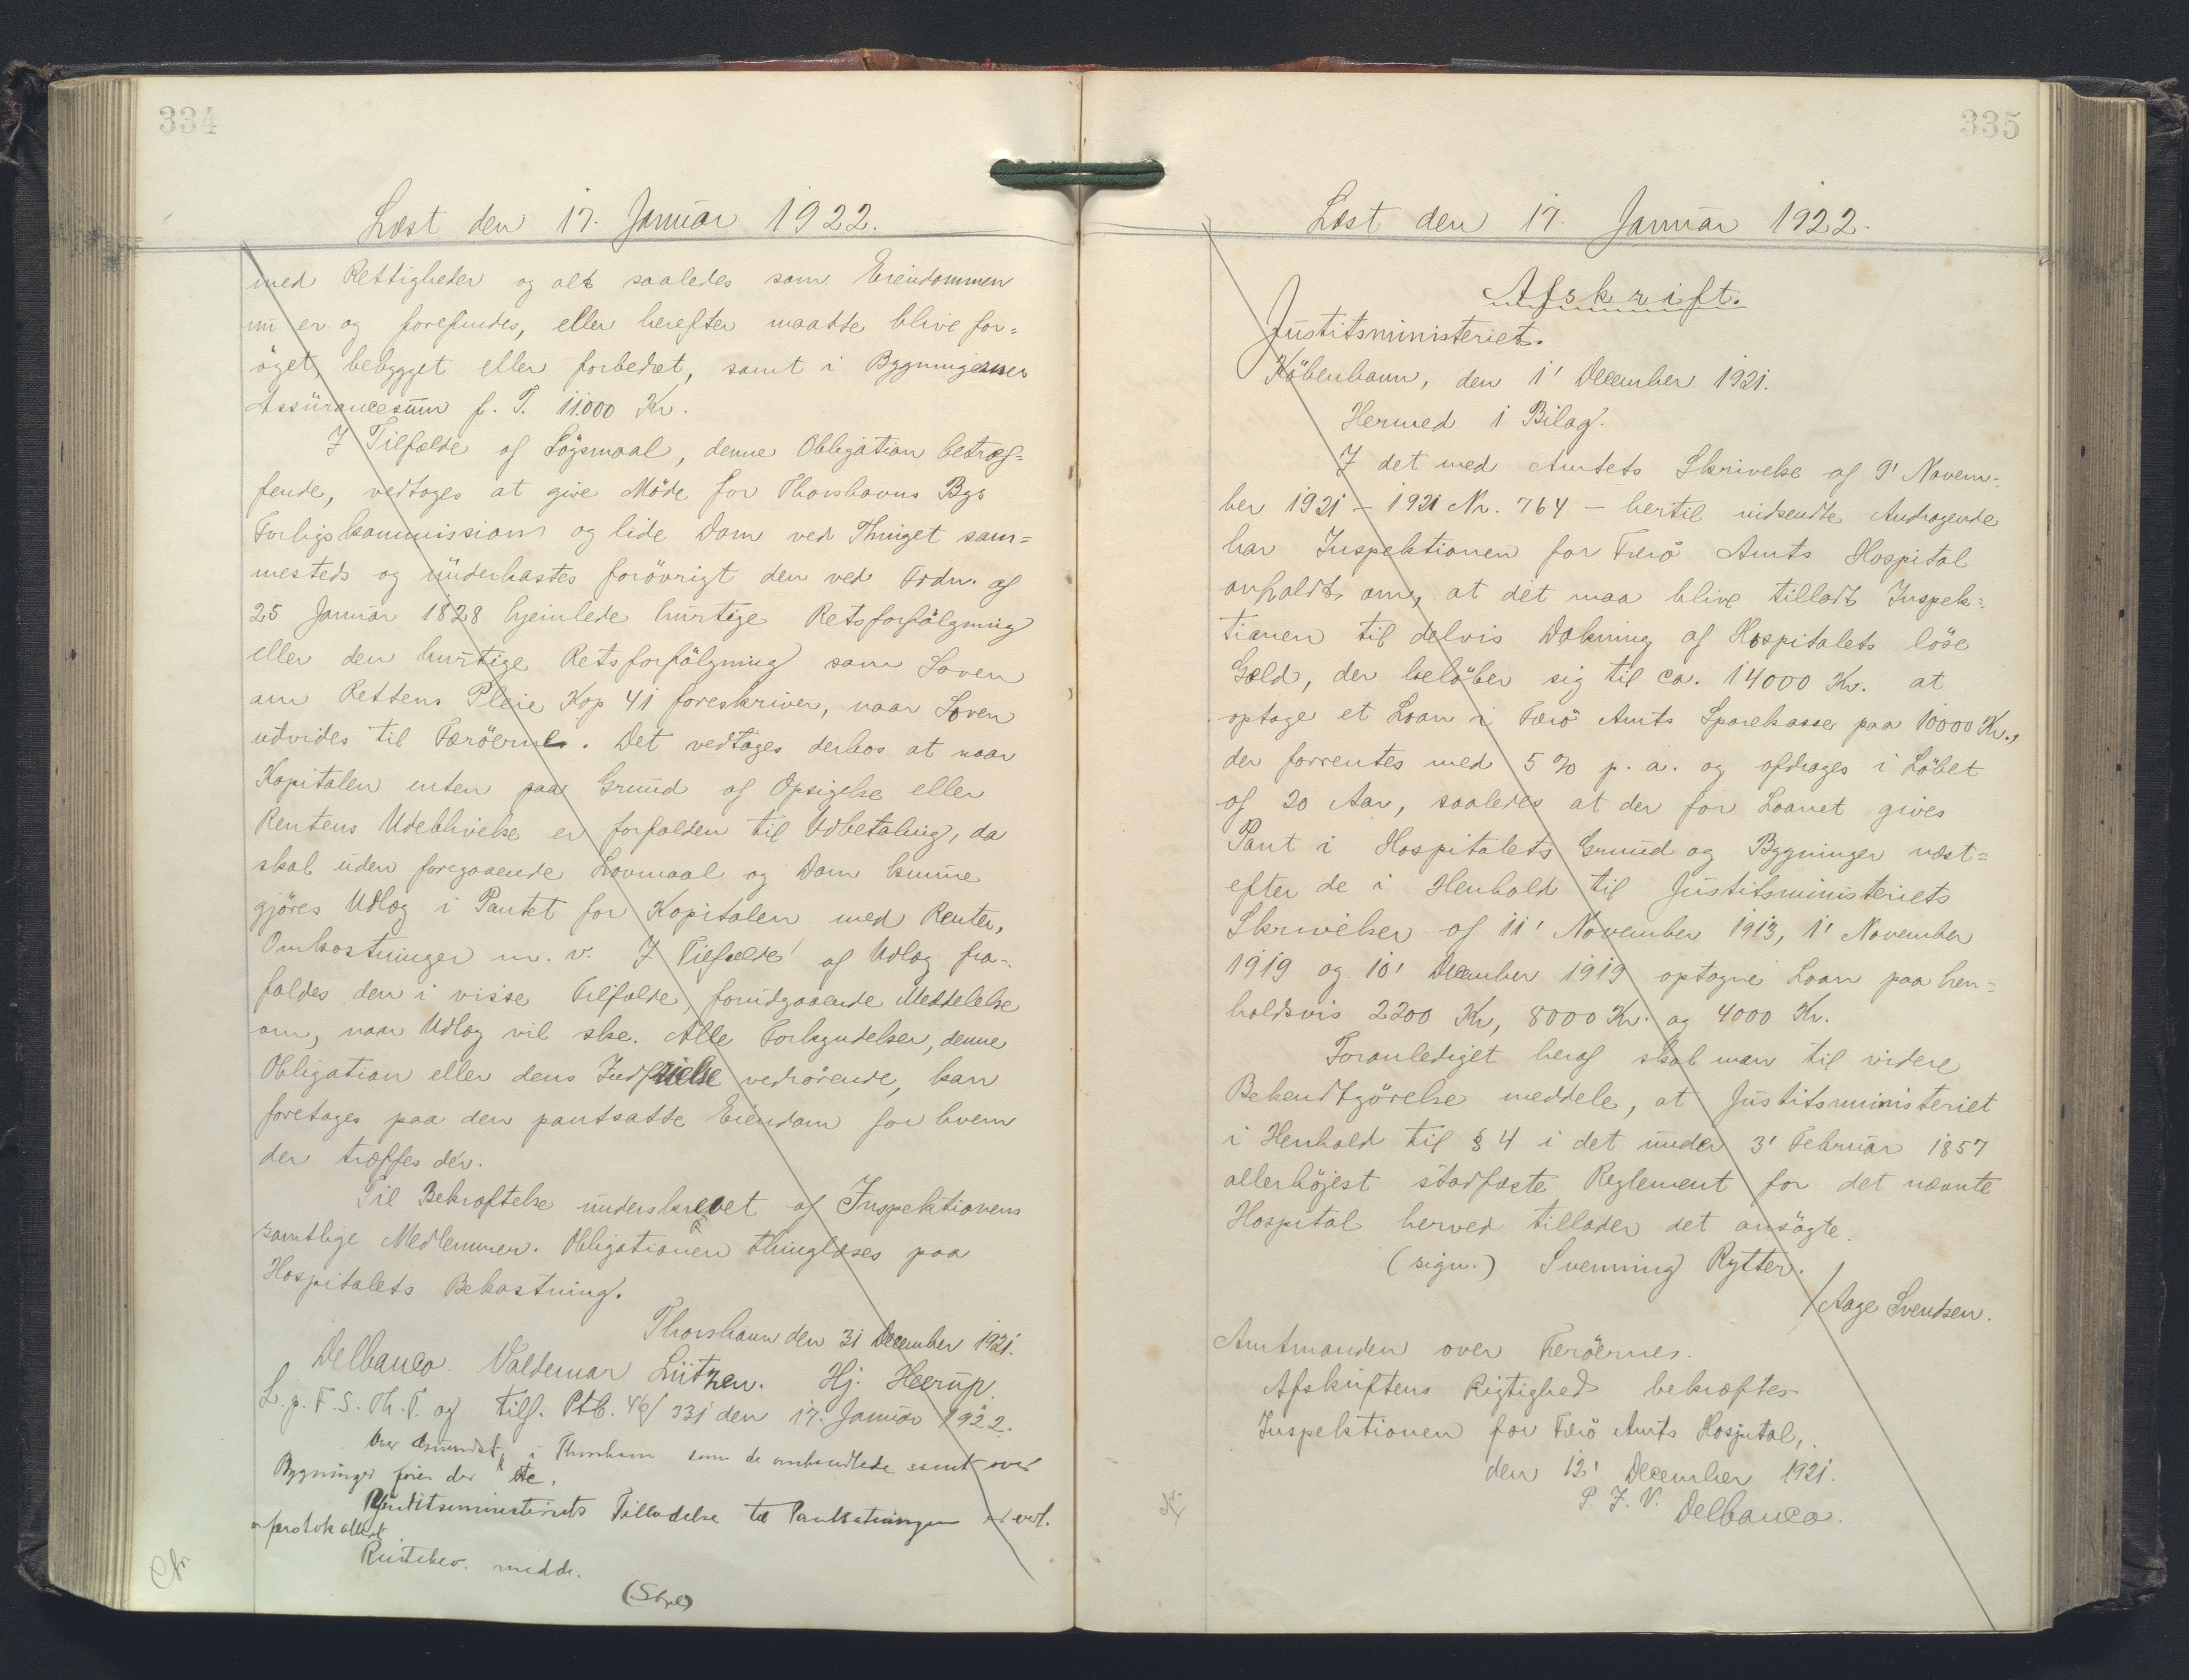 334
Læst den 17. Januar 1922.
med Rettigheder og alt saaledes som Eiendommen
nu er og forefindes, eller herefter maatte blive for=
øget, bebygget eller forbedret, samt i Bygningernes
Assürancesum p. T. 11.000 Kr.
I Tilfælde af Søgsmaal, denne Obligation betræf=
fende, vedtages at give Møde for Thorshavns Bgs
Forligskommission og lide Dom ved Thinget sam=
mesteds og underkastes forøvrigt den ved Frdn. af
25 Januar 1828 hjemlede hurtige Retsforfølgning
eller den hurtige Retsforfølgning som Loven
om Rettens Pleie Kap 41 foreskriver, naar Loven
udvides til Færøerne. Det vedtages derhos at naar
Kapitalen enten paa Grund af Opsigelse eller
Rentens Udeblivelse er forfalden til Udbetaling, da
skal uden foregaaende Lovmaal og Dom kunne
gjøres Udlæg i Pantet for Kapitalen med Renter,
Omkostninger m. v. I Tilfælde af Udlæg fra=
faldes den i visse Tilfælde forudgaaende Meddelelse
om, naar Udlæg vil ske. Alle Forkyndelser, denne
Obligation eller dens Indfrielse vedrørende, kan
foretages paa den pantsatte Eiendom for hvem
der træffes dér.
Til Bekræftelse underskrevet af Inspektionens
samtlige Medlemmer. Obligationen thinglæses paa
Hospitalets Bekostning.
Thorshavn den 31 December 1921.
Delbanco. Valdemar Lützen. Hj. Heerup.
L. p. F. S. Th. T. og tilf. Ptb. 46/331 den 17. Januar 1922.
i Thorshavn som de ombehandlede samt over
Bygninger
Justitsministeriets Tilladelse til Pantsætningen
protokolleret
medd.
335
Læst den 17. Januar 1922.
Afskrift.
Justitsministeriet.
København, den 1' December 1921.
Hermed 1 Bilag.
I det med Amtets Skrivelse af 9' Novem=
ber 1921 – 1921 Nr. 764 – hertil indsendte Andragende
har Inspektionen for Færø Amts Hospital
anholdt om, at det maa blive tilladt Inspek=
tionen til delvis Dækning af Hospitalets løse
Gæld, der beløber sig til ca. 14000 Kr. at
optage et Laan i Færø Amts Sparekasse paa 10000 Kr.,
der forrentes med 5 % p. a. og afdrages i Løbet
af 20 Aar, saaledes at der for Laanet gives
Pant i Hospitalets Grund og Bygninger næst=
efter de i Henhold til Justitsministeriets
Skrivelser af 11' November 1913, 1' November
1919 og 10' December 1919 optagne Laan paa hen=
holdsvis 2200 Kr, 8000 Kr. og 4000 Kr.
Foranlediget heraf skal man til videre
Bekendtgørelse meddele, at Justitsministeriet
i Henhold til § 4 i det under 3' Februar 1857
allerhøjest stadfæste Reglement for det nævnte
Hospital herved tillader det ansøgte.
(sign.) Svenning Rytter.
/ Aage Svendsen.
Amtmanden over Færøernes.
Afskriftens Rigtighed bekræftes.
Inspektionen for Færø Amts Hospital,
den 12' December 1921.
P. I. V.
Delbanco.